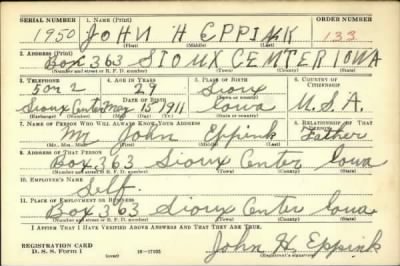 SERIAL NUMBER 1. NAME (Print) ORDER NUMBER
1950 JOHN H EPPINK 133
(First) (Middle) (Last)
2. ADDRESS (Print)
BOX 363 SIOUX CENTER IOWA
(Number and street or R. F. D. number) (Town) (County) (State)
3. TELEPHONE 4. AGE IN YEARS 5. PLACE OF BIRTH 6. COUNTRY OF CITIZENSHIP
29 Sioux
DATE OF BIRTH
Sioux Center May 15 1911 Iowa U.S.A.
(Exchange) (Number) (Mo.) (Day) (Yr.) (State or county)
7. NAME OF PERSON WHO WILL ALWAYS KNOW YOUR ADDRESS 8. RELATIONSHIP OF THAT PERSON
M John Eppink Father
(Mr., Mrs., Miss) (First) (Middle) (Last)
9. ADDRESS OF THAT PERSON
Box 363 Sioux Center Iowa
(Number and street or R. F. D. number) (Town) (County) (State)
10. EMPLOYER'S NAME
Self
11. PLACE OF EMPLOYMENT OR BUSINESS
Box 363 Sioux Center Iowa
(Number and street or R. F. D. number) (Town) (County) (State)
I AFFIRM THAT I HAVE VERIFIED ABOVE ANSWERS AND THAT THEY ARE TRUE.
REGISTRATION CARD
D. S. S. Form 1 (over) 16—17105
John H. Eppink
(Registrant's signature)